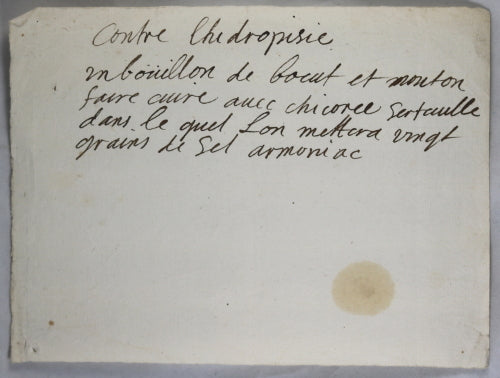 Contre lhidropisie
un boüillon de boeut et mouton
faire cuire avec chicoree Serfeuille
dans le quel Lon mettera vingt
grains de Sel armoniac